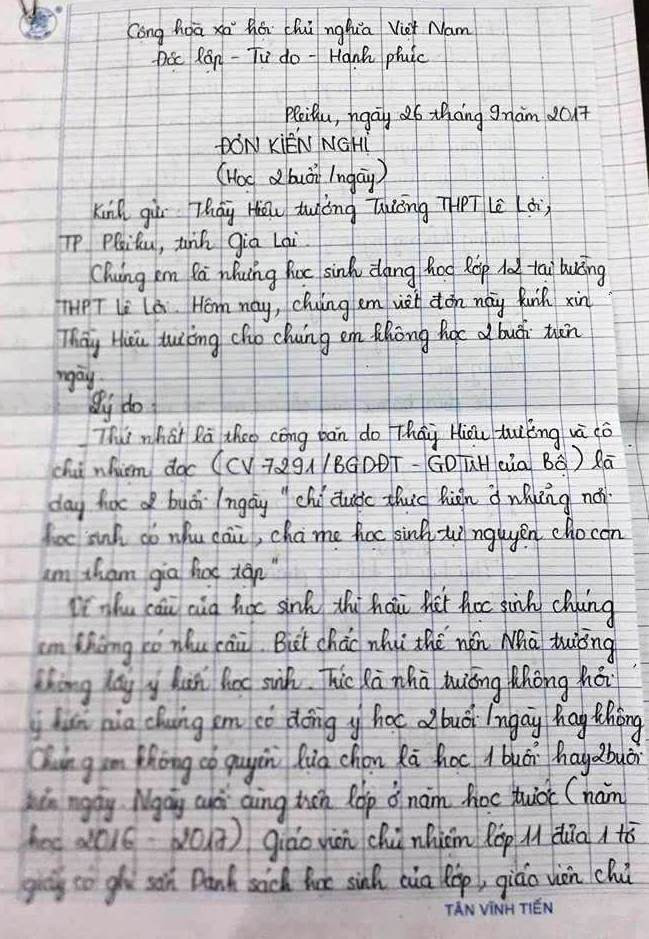 Cộng hoà xã hội chủ nghĩa Việt Nam
Độc lập - Tự do - Hạnh phúc
Pleiku, ngày 26 tháng 9 năm 2017
ĐƠN KIẾN NGHỊ
(Học 2 buổi /ngày)
Kính gửi: Thầy Hiệu trưởng Trường THPT Lê Lợi,
TP Pleiku, tỉnh Gia Lai.
Chúng em là những học sinh đang học lớp 12 tại trường
THPT Lê Lợi. Hôm nay, chúng em viết đơn này kính xin
Thầy Hiệu trưởng cho chúng em không học 2 buổi trên
ngày.
Lý do:
- Thứ nhất là theo công văn do Thầy Hiệu trưởng và cô
chủ nhiệm đọc (CV 7291/BGDĐT - GDTrH của Bộ) là
dạy học 2 buổi /ngày "chỉ được thực hiện ở những nơi
học sinh có nhu cầu, cha mẹ học sinh tự nguyện cho con
em tham gia học tập"
Về nhu cầu của học sinh thì hầu hết học sinh chúng
em không có nhu cầu. Biết chắc như thế nên Nhà trường
không lấy ý kiến học sinh. Tức là nhà trường không hỏi
ý kiến của chúng em có đồng ý học 2 buổi /ngày hay không
Chúng em không có quyền lựa chọn là học 1 buổi hay 2 buổi
trên ngày. Ngày cuối cùng trên lớp ở năm học trước (năm
học 2016 - 2017) giáo viên chủ nhiệm lớp 11 đưa 1 tờ
giấy có ghi sẵn Danh sách học sinh của lớp, giáo viên chủ
TÂN VĨNH TIẾN